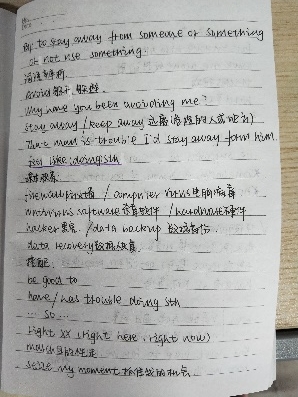 to stay away from someone or something
or not use something.
avoid 避开，躲避
Why have you been avoiding me?
stay away / keep away 远离
That man is trouble I'd stay away form him.
feel like doing sth
firewall 防火墙 / computer virus 电脑病毒
antivirus software 杀毒软件 / hardware 硬件
hacker 黑客 / data backup 数据备份
data recovery 数据恢复
be good to
have/has trouble doing sth
... so ...
right xx (right here, right now)
seize my moment